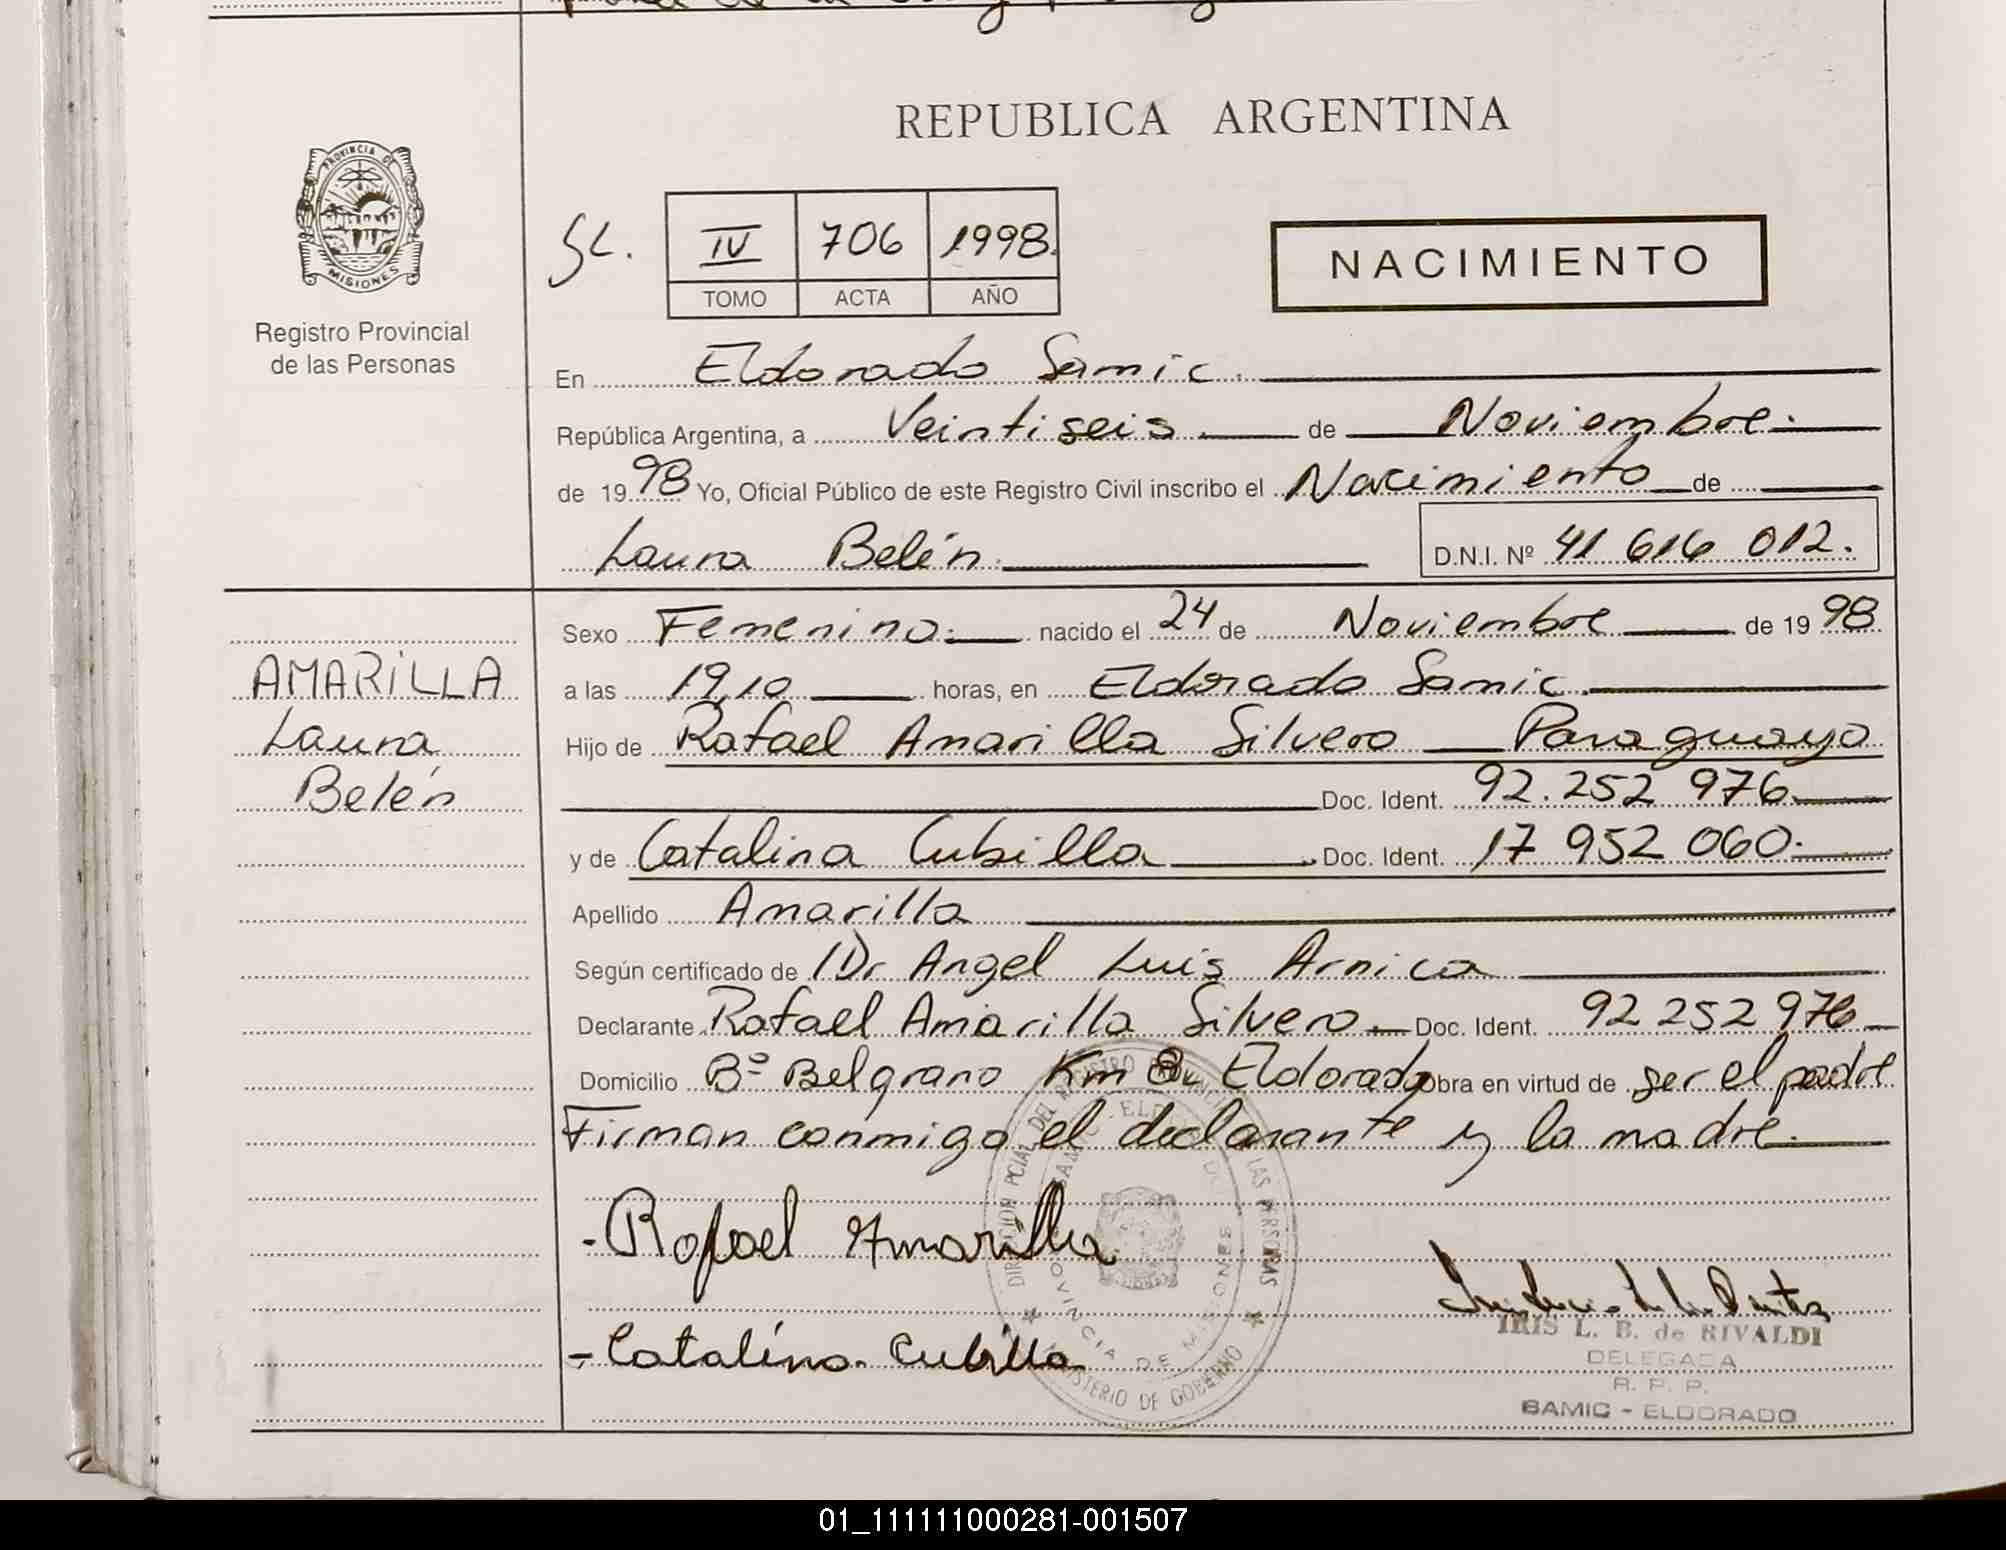 REPUBLICA ARGENTINA
PROVINCIA DE
MISIONES
Registro Provincial
de las Personas
SC. IV 706 1998.
TOMO ACTA AÑO
NACIMIENTO
En Eldorado Samic.
República Argentina, a Veintiseis de Noviembre.
de 1998 Yo, Oficial Público de este Registro Civil inscribo el Nacimiento de
Laura Belén. D.N.I. Nº 41 616 012.
AMARiLLA
Laura
Belén
Sexo Femenino. nacido el 24 de Noviembre de 1998
a las 19,10 horas, en Eldorado Samic.
Hijo de Rafael Amarilla Silvero Paraguayo
Doc. Ident. 92.252 976.
y de Catalina Cubilla Doc. Ident. 17 952 060.
Apellido Amarilla
Según certificado de Dr Angel Luis Arnica
Declarante Rafael Amarilla Silvero Doc. Ident. 92 252 976
Domicilio Bº Belgrano Km 8 Eldorado Obra en virtud de ser el padre
Firman conmigo el declarante y la madre.
- Rafael Amarilla
- Catalina Cubilla
IRIS L. B. de RIVALDI
DELEGADA
R. P. P.
SAMIC - ELDORADO
01_111111000281-001507